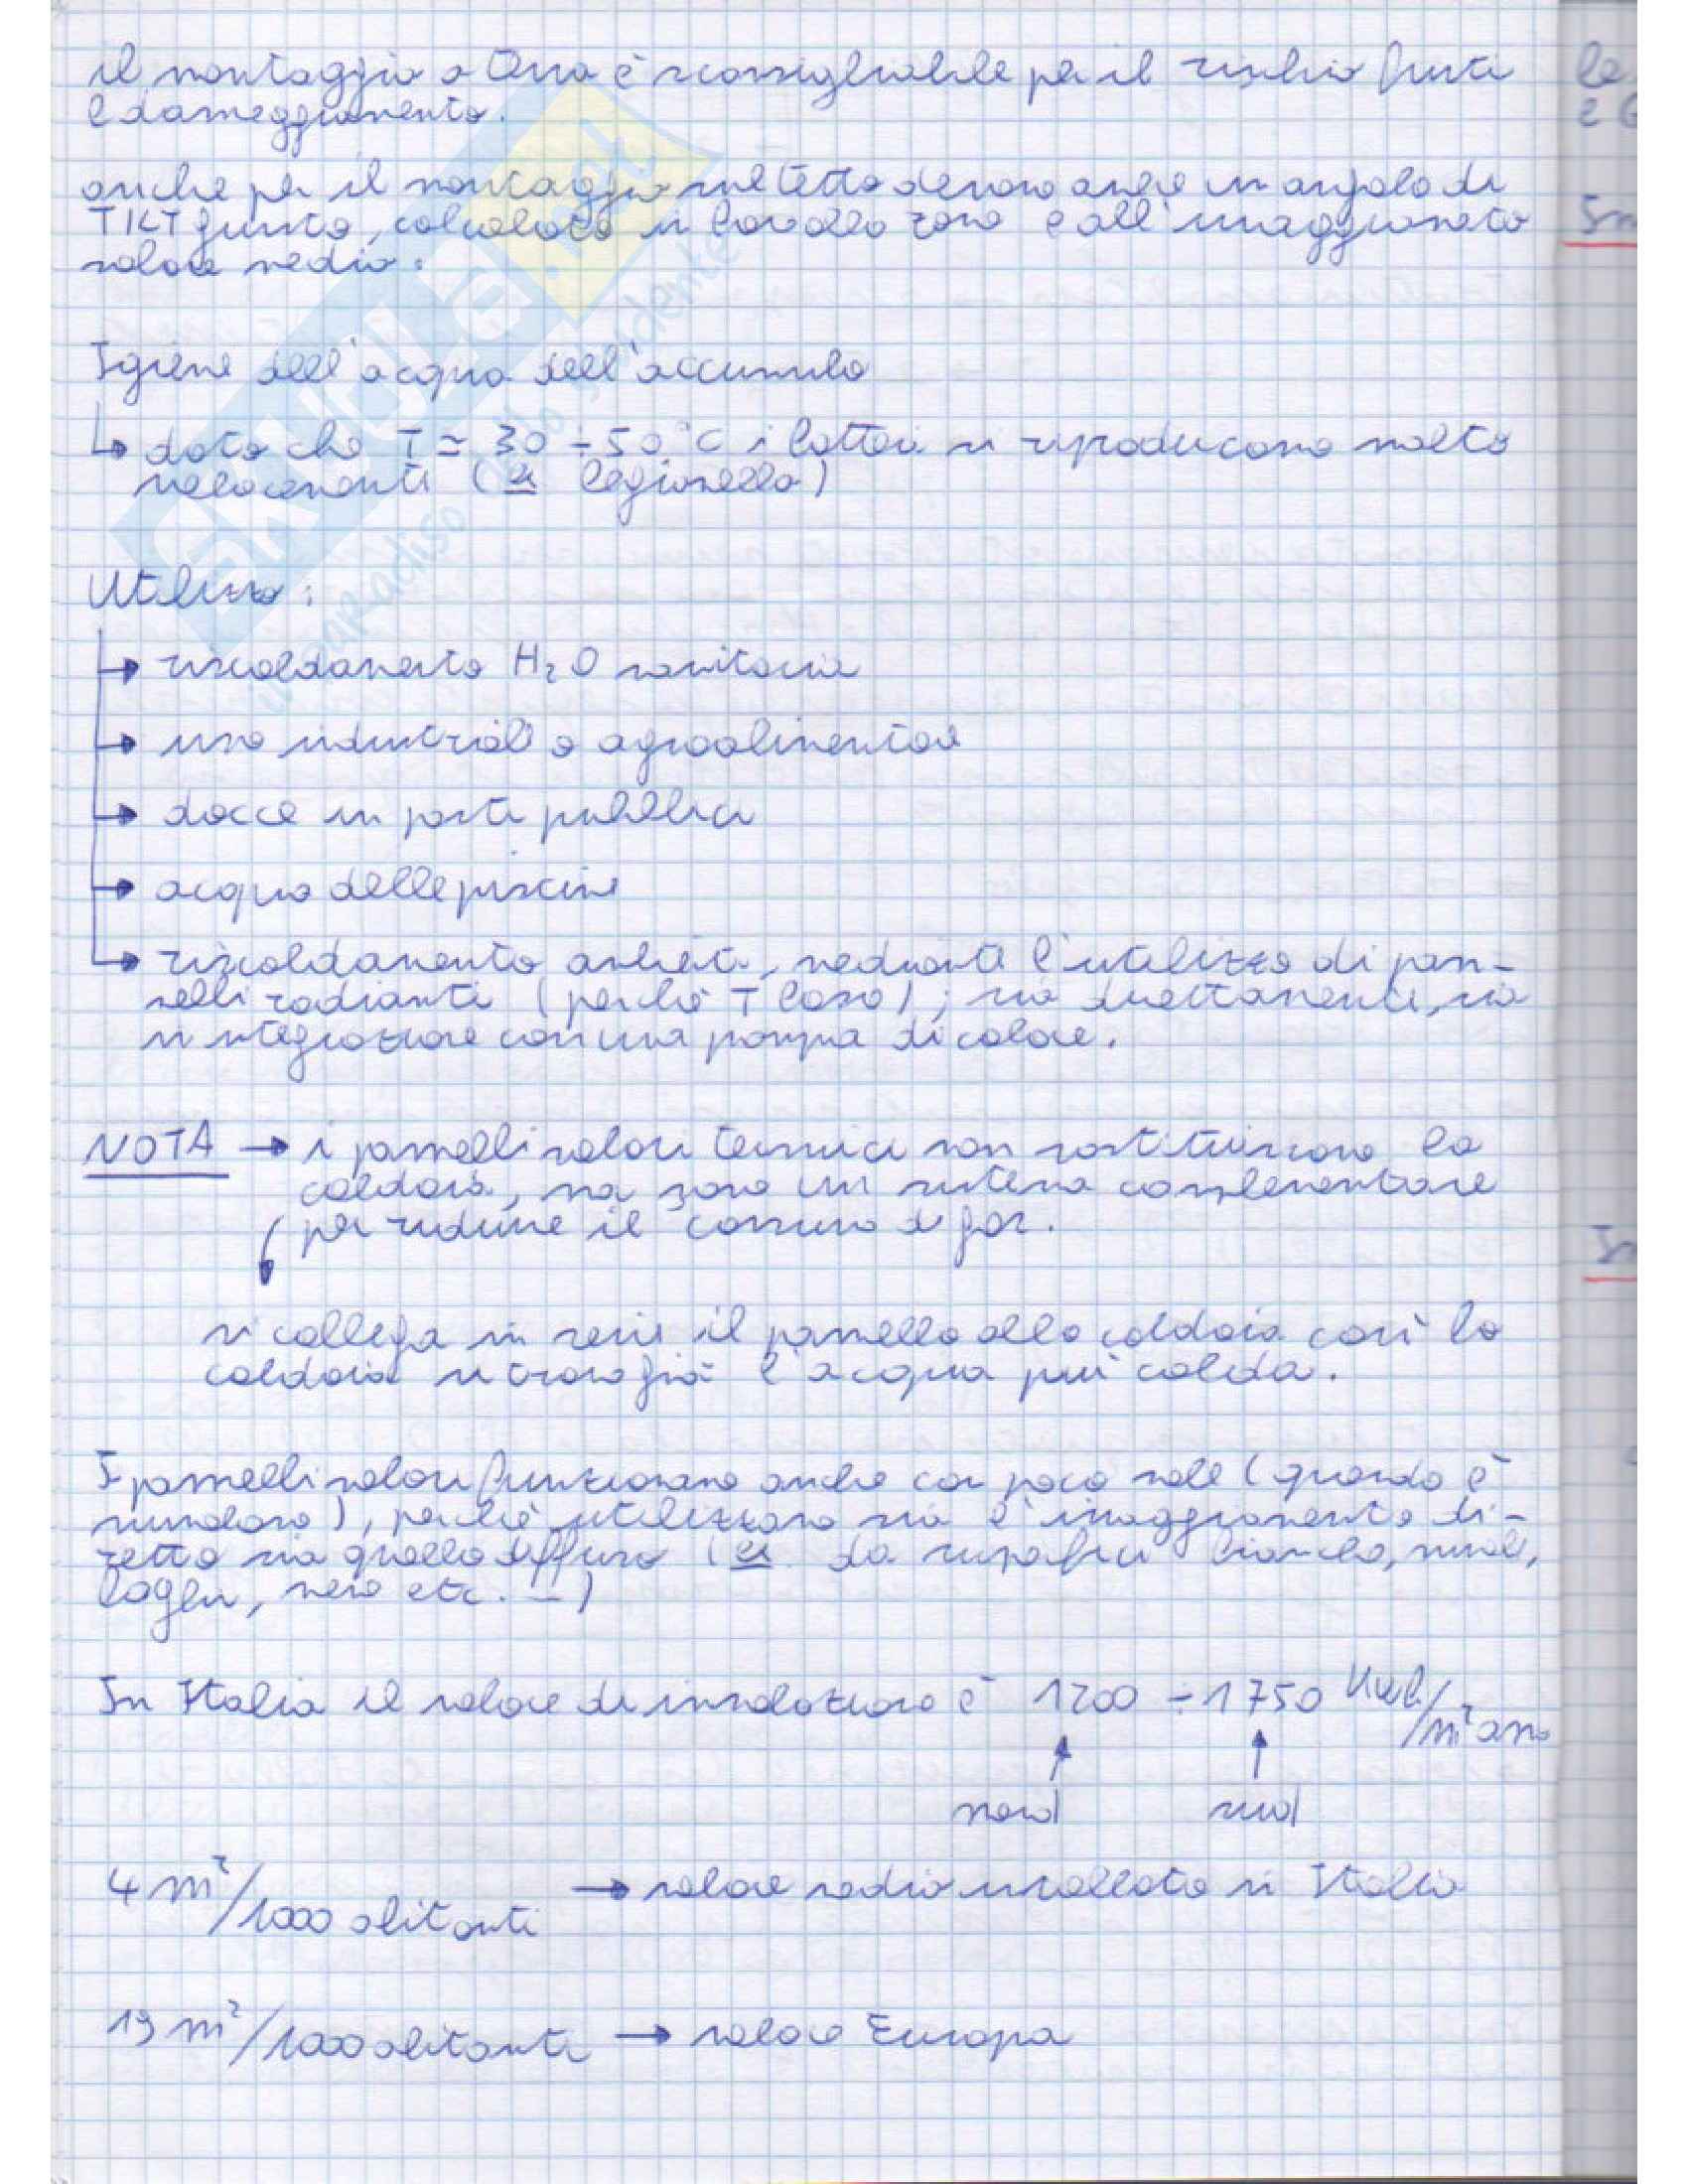 il montaggio a terra è sconsigliabile per il rischio furti
e danneggiamento.
anche per il montaggio sul tetto devono avere un angolo di
TILT giusto, calcolato in base alla zona e all'irraggiamento
solare medio.
Igiene dell'acqua dell'accumulo
↳ dato che T ≃ 30 ÷ 50 °C i batteri si riproducono molto
velocemente (es legionella)
Utilizzo:
→ riscaldamento H₂O sanitaria
→ uso industriale o agroalimentare
→ docce in posti pubblici
→ acqua delle piscine
→ riscaldamento ambienti, mediante l'utilizzo di pan-
nelli radianti (perché T bassa); sia direttamente, sia
in integrazione con una pompa di calore.
NOTA → i pannelli solari termici non sostituiscono la
caldaia, ma sono un sistema complementare
per ridurre il consumo di gas.
si collega in serie il pannello alla caldaia così la
caldaia si trova già l'acqua più calda.
I pannelli solari funzionano anche con poco sole (quando è
nuvoloso), perché utilizzano sia l'irraggiamento di-
retto sia quello diffuso (es da superfici bianche, nuvole,
laghi, neve etc. _)
In Italia il valore di insolazione è 1200 ÷ 1750 kWh/m² anno
nord sud
4 m²/1000 abitanti → valore medio installato in Italia
19 m²/1000 abitanti → valore Europa
SKUOLA.net
un paradiso per lo studente
le
In
In